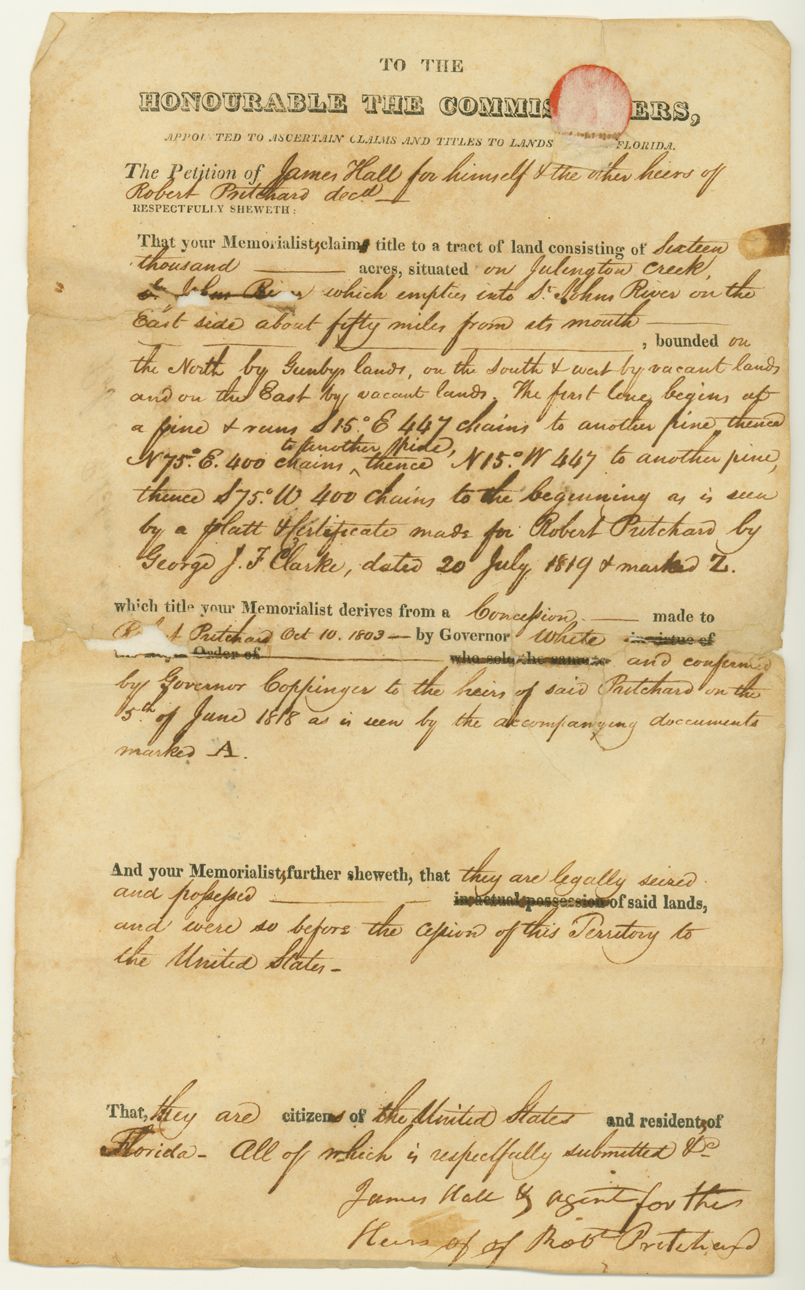 TO THE
HONOURABLE THE COMMIS ERS,
APPOINTED TO ASCERTAIN CLAIMS AND TITLES TO LANDS FLORIDA.
The Petition of James Hall for himself & the other heirs of
Robert Pritchard decd
RESPECTFULLY SHEWETH:
That your Memorialists claim title to a tract of land consisting of Sixteen
thousand acres, situated on Julington Creek,
St Johns River which empties into St Johns River on the
East side about fifty miles from its mouth
, bounded on
the North by Gunbys lands, on the South & west by vacant lands
and on the East by vacant lands. The first line begins at
a pine & runs S 15.° E 447 chains to another pine thence
to another pine,
N 75.° E. 400 chains ^ thence N 15.° W 447 to another pine,
thence S 75.° W 400 chains to the beginning as is seen
by a platt & Certificate made for Robert Pritchard by
George J. F Clarke, dated 20 July 1819 & marked Z.
which title your Memorialist derives from a Concession made to
Pritchard Oct 10. 1803 — by Governor White in virtue of
Order of who sold the same to and confirmed
by Governor Coppinger to the heirs of said Pritchard on the
5th of June 1818 as is seen by the accompanying documents
marked A.
And your Memorialists further sheweth, that they are legally seized
and possessed in actual possession of said lands,
and were so before the cession of this Territory to
the United States -
That, they are citizens of the United States and residents of
Florida - All of which is respectfully submitted &c
James Hall & agent for the
Heirs of of Robt Pritchard